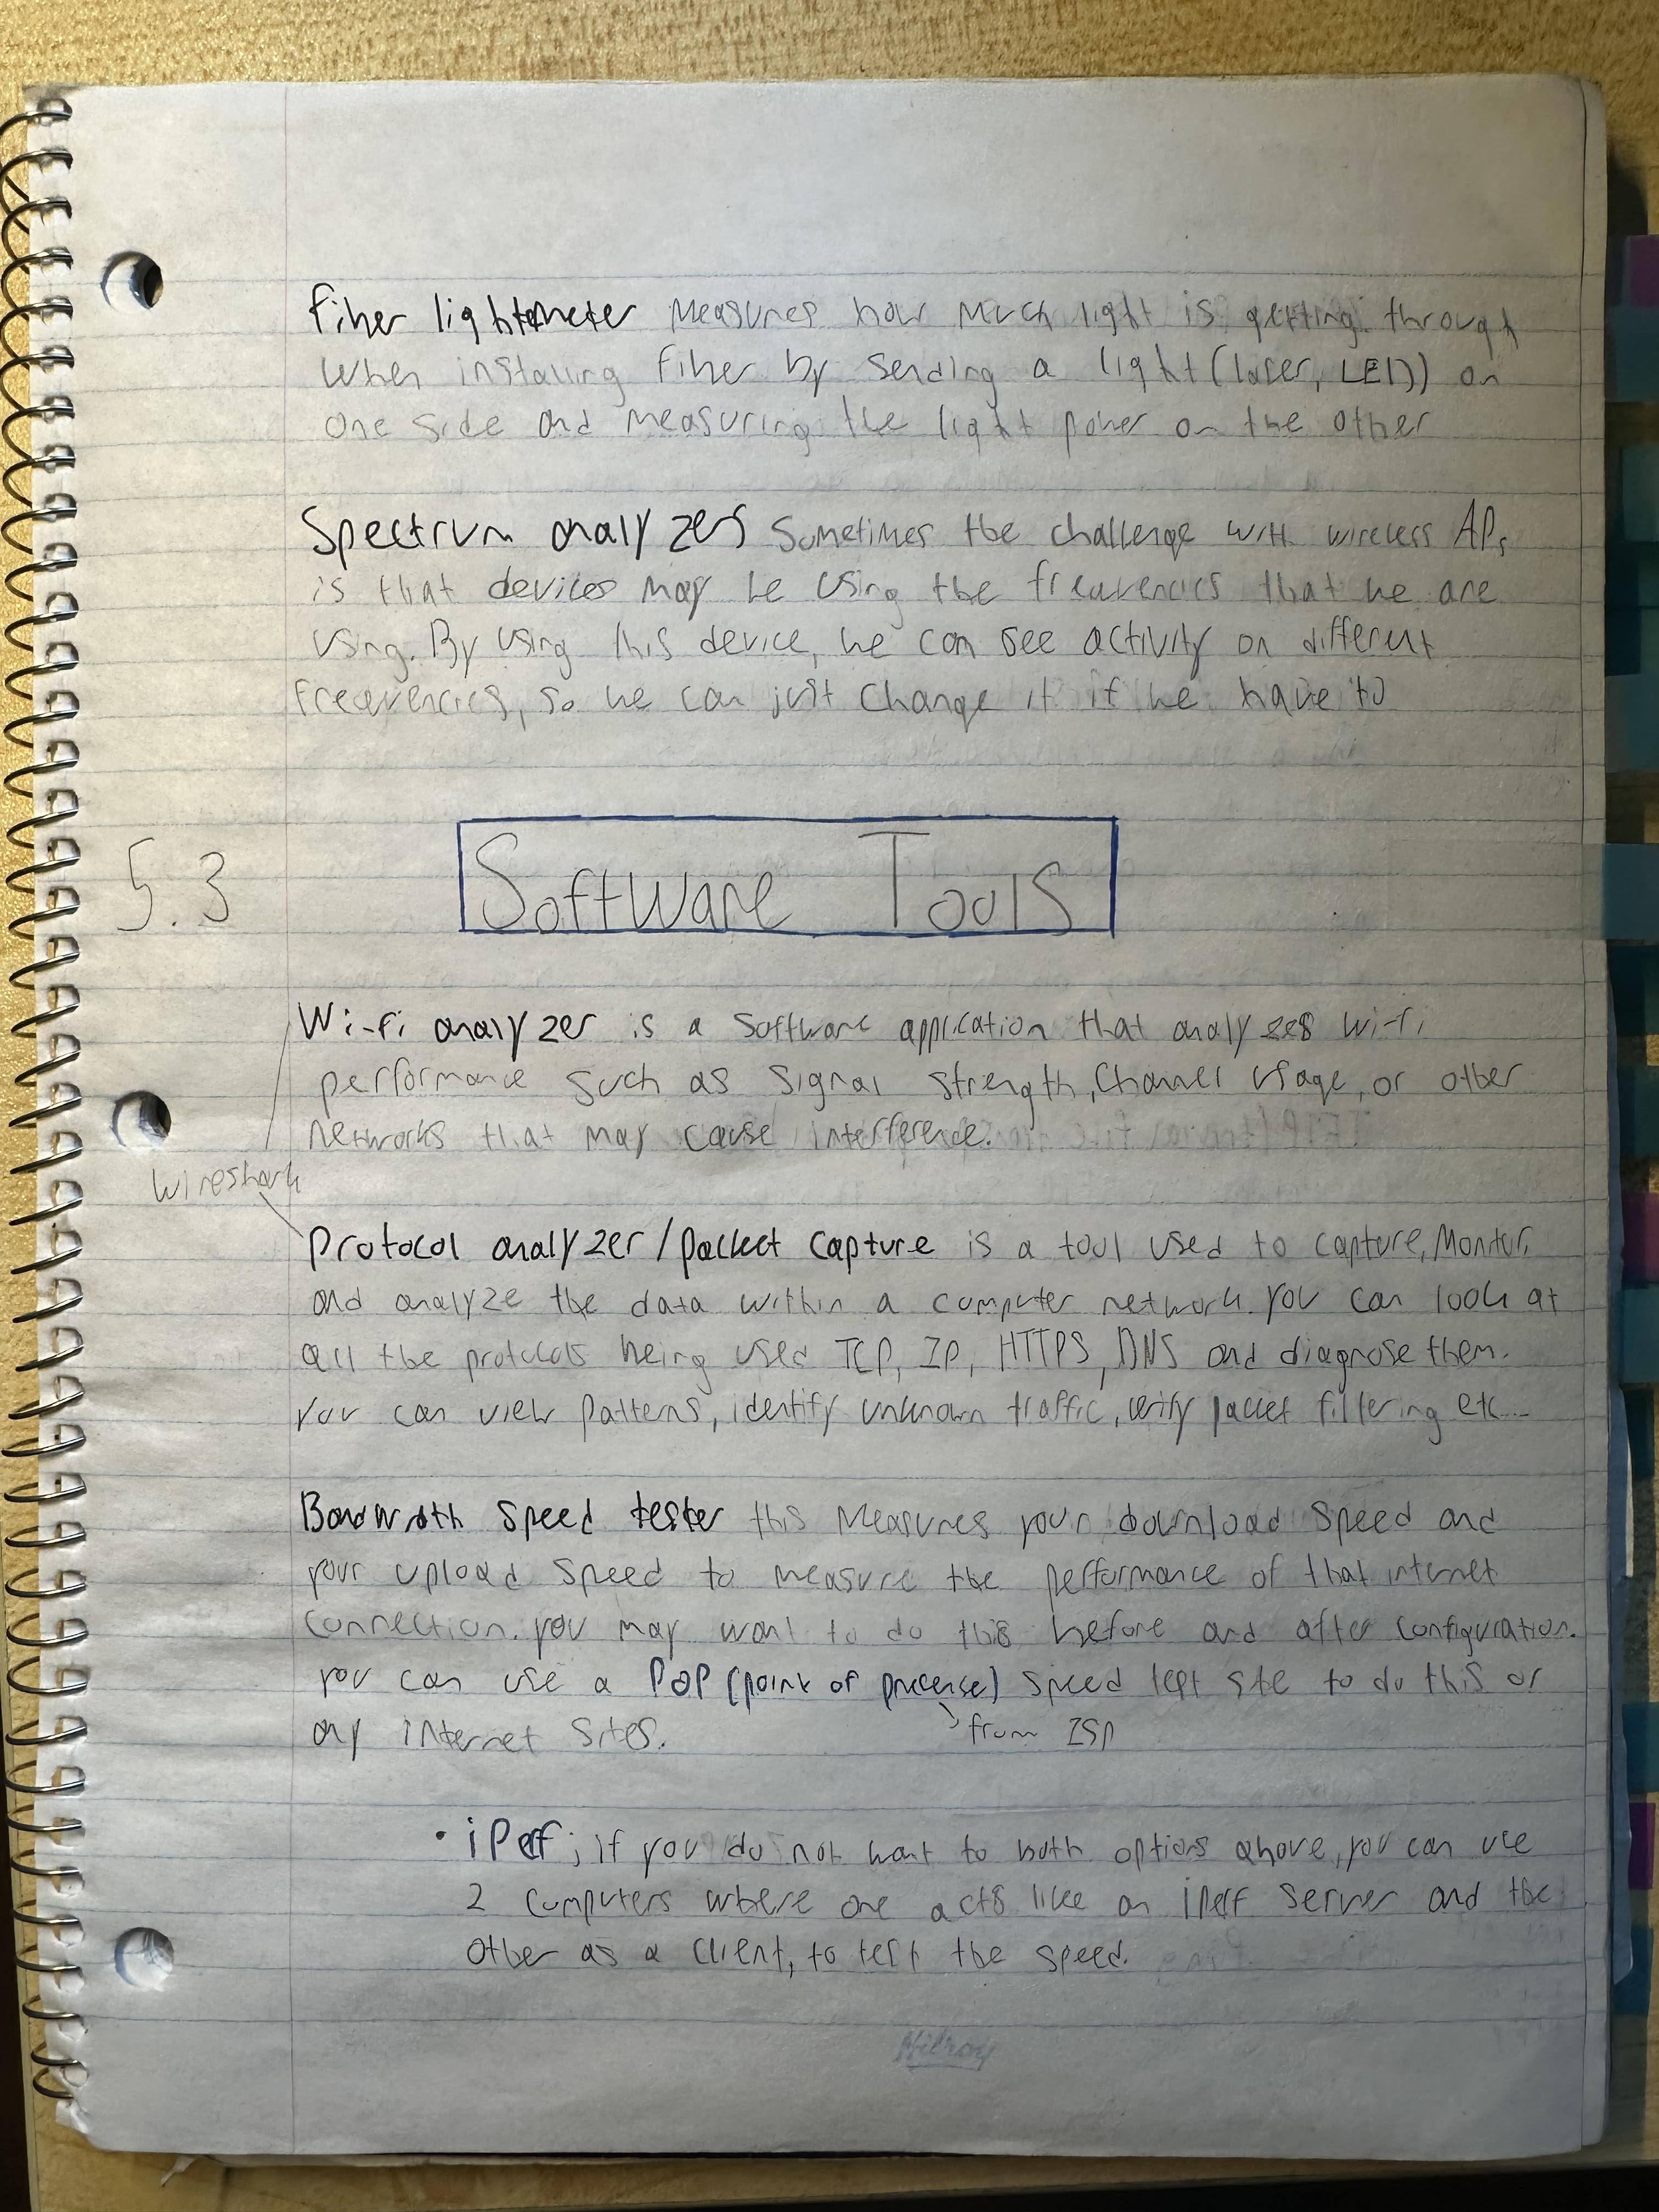 Fiber lightmeter measures how much light is getting through
when installing fiber by sending a light (laser, LED) on
one side and measuring the light power on the other
Spectrum analyzers Sometimes the challenge with wireless APs
is that devices may be using the frequencies that we are
using. By using this device, we can see activity on different
frequencies, so we can just change it if we have to
5.3 Software Tools
Wi-fi analyzer is a software application that analyzes wi-fi
performance such as signal strength, channel usage, or other
networks that may cause interference.
Wireshark
Protocol analyzer/packet capture is a tool used to capture, monitor,
and analyze the data within a computer network. you can look at
all the protocols being used TCP, IP, HTTPS, DNS and diagnose them.
you can view patterns, identify unknown traffic, verify packet filtering etc...
Bandwidth speed tester this measures your download speed and
your upload speed to measure the performance of that internet
connection. you may want to do this before and after configuration.
you can use a POP (point of precense) speed test site to do this or
any internet sites.
from ISP
• iPerf; if you do not want to both options above, you can use
2 computers where one acts like an iperf server and the
other as a client, to test the speed.
Hilroy